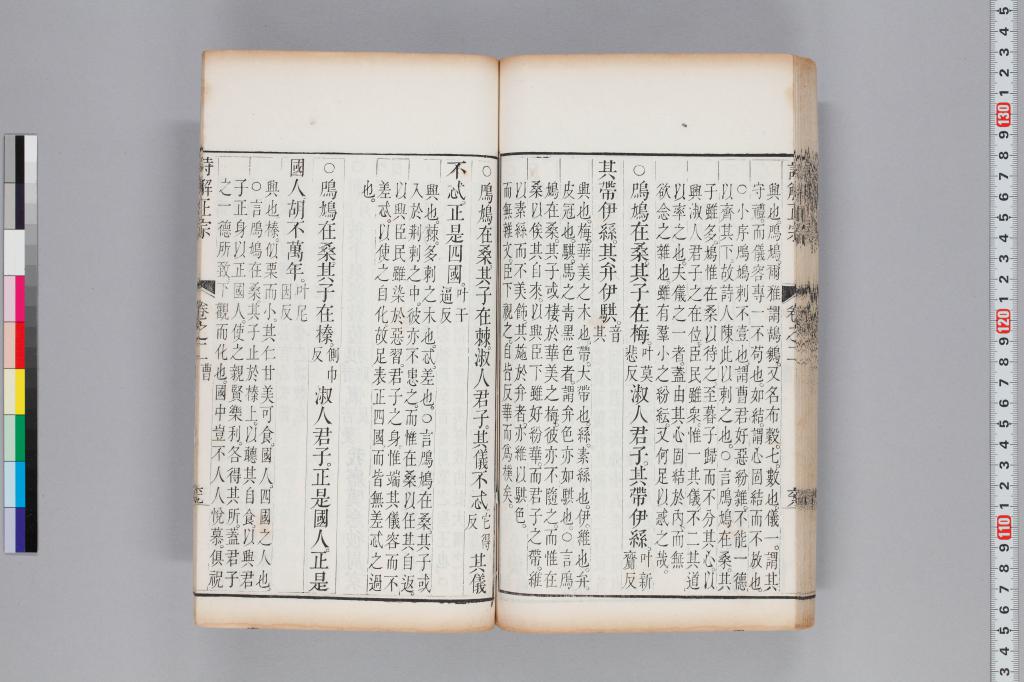 興也鳲鳩爾雅謂鴶鵴又名布穀七數也儀一謂其
守禮而儀容專一不苟也如結謂心固結而不散也
○小序鳲鳩刺不壹也謂曹君好惡紛雜不能一德
以齊其下故詩人陳此以刺之也○言鳲鳩在桑其
子雖多鳩惟在桑以待之至暮子歸而不分其心以
興淑人君子之在位臣民雖衆惟一其儀不二其道
以率之也夫儀之一者蓋由其心固結於內而無
欲念之雜也雖有羣小之紛紜又何足以惑之哉
○鳲鳩在桑其子在梅叶莫悲反淑人君子其帶伊絲叶新齎反
其帶伊絲其弁伊騏音其
興也梅華美之木也帶大帶也絲素絲也伊維也弁
皮冠也騏馬之青黑色者謂弁色亦如騏也○言鳲
鳩在桑其子或棲於華美之梅彼亦不隨之而惟在
桑以俟其自來以興臣下雖好紛華而君子之帶維
以素絲而不美飾其施於弁者亦維以騏色
而無雜文臣下視之自皆反華而爲樸矣
○鳲鳩在桑其子在棘淑人君子其儀不忒它得反其儀
不忒正是四國叶于逼反
興也棘多刺之木也忒差也○言鳲鳩在桑其子或
入於荊刺之中彼亦不患之而惟在桑以任其自返
以興臣民雖染於惡習君子之身惟端其儀容而不
差忒以使之自化故足表正四國而皆無差忒之過
也
○鳲鳩在桑其子在榛側巾反淑人君子正是國人正是
國人胡不萬年叶尼因反
興也榛似栗而小其仁甘美可食國人四國之人也
○言鳲鳩在桑其子止於榛上以聽其自食以興君
子正身以正國人使之親賢樂利各得其所蓋君子
之一德所致下觀而化也國中豈不人人悅慕俱祝
詩解正宗 卷之二 曹